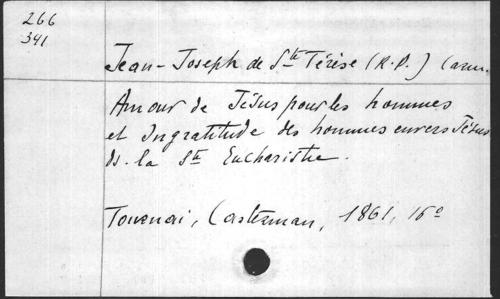 266
341
Jean-Joseph de Ste Térèse (R.P.) Carm.
Amour de Jésus pour les hommes
et Ingratitude des hommes envers Jésus
ds. la Ste Eucharistie.
Tournai, Casterman, 1861, 16o